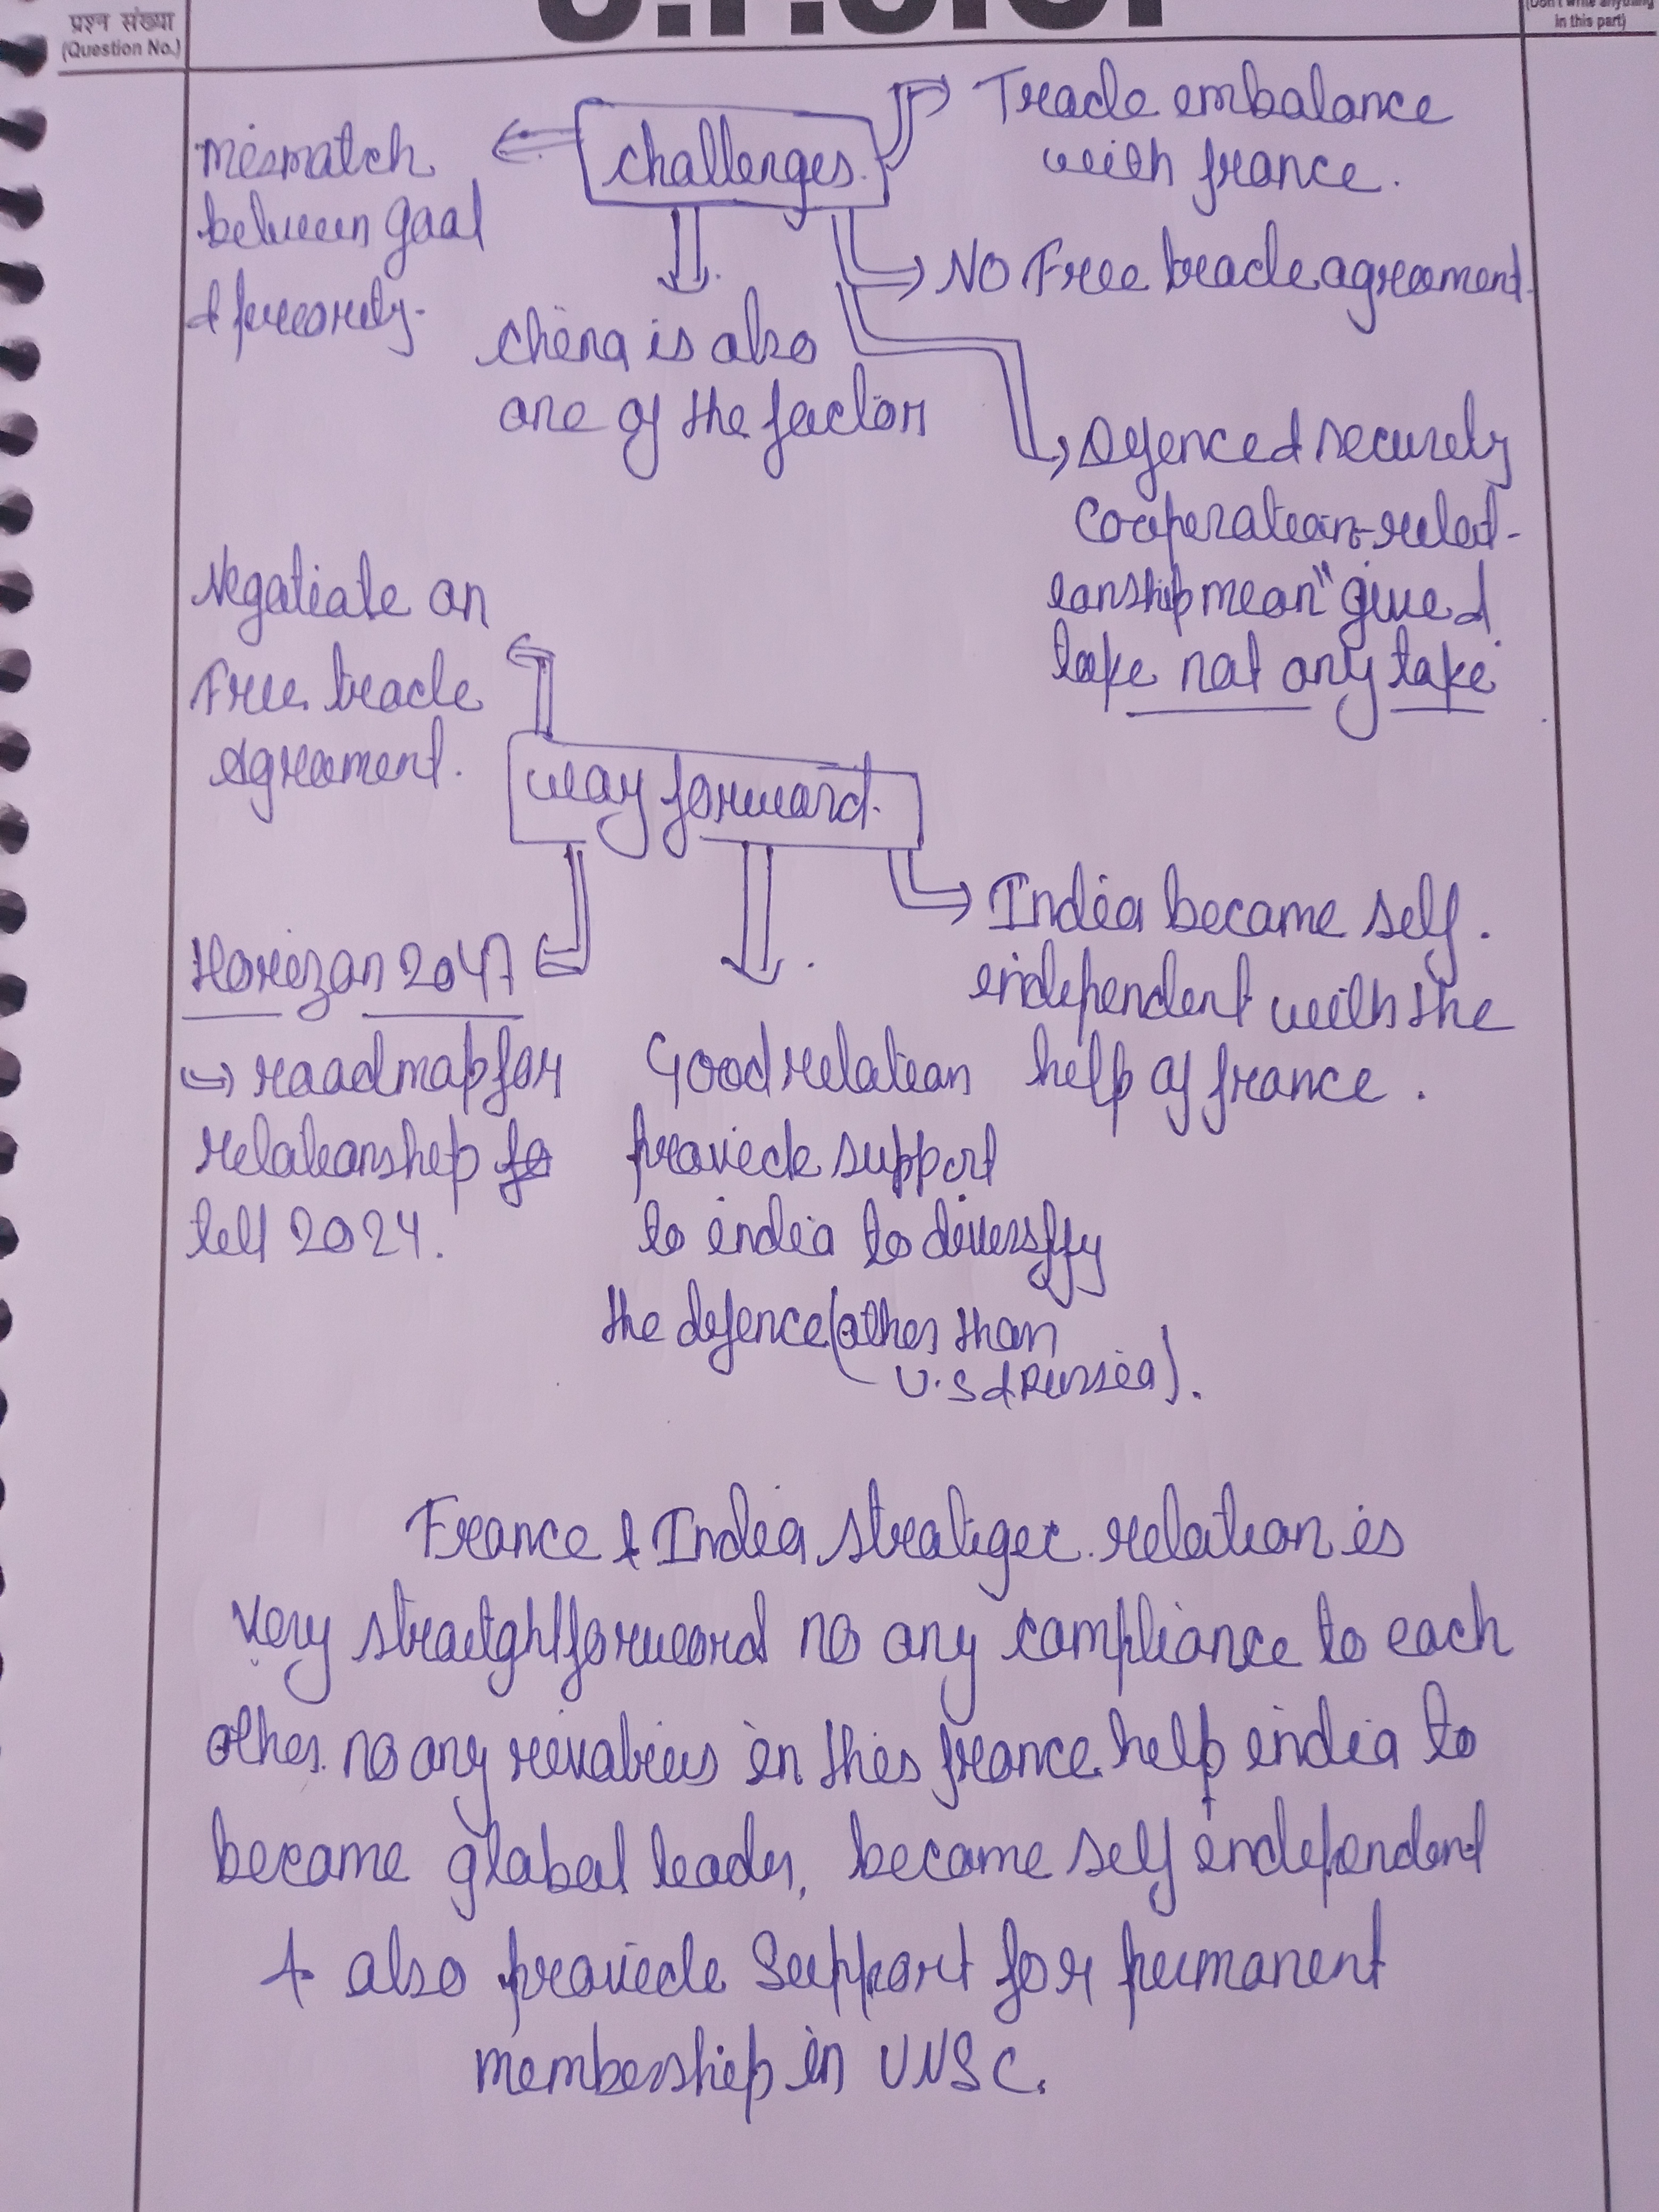 प्रश्न संख्या
(Question No.)
(Don't write anything
in this part)
challenges.
Mismatch
between goal
& priority.
China is also
one of the factor
Trade imbalance
with france.
NO Free trade agreement
Defence & security
Cooperation - relat-
ionship mean "give &
take not any take
way forward.
Negotiate on
Free trade
Agreement.
Horizon 2047
↪ roadmap for
relationship
till 2024.
Good relation
provide support
to india to diversify
the defence (other than
U.S & Russia).
India became self.
independent with the
help of france.
France & India strategic relation is
very straightforward no any compliance to each
other no any rivalries in this france help india to
became global leader, became self independent
& also provide support for permanent
membership in UNSC.